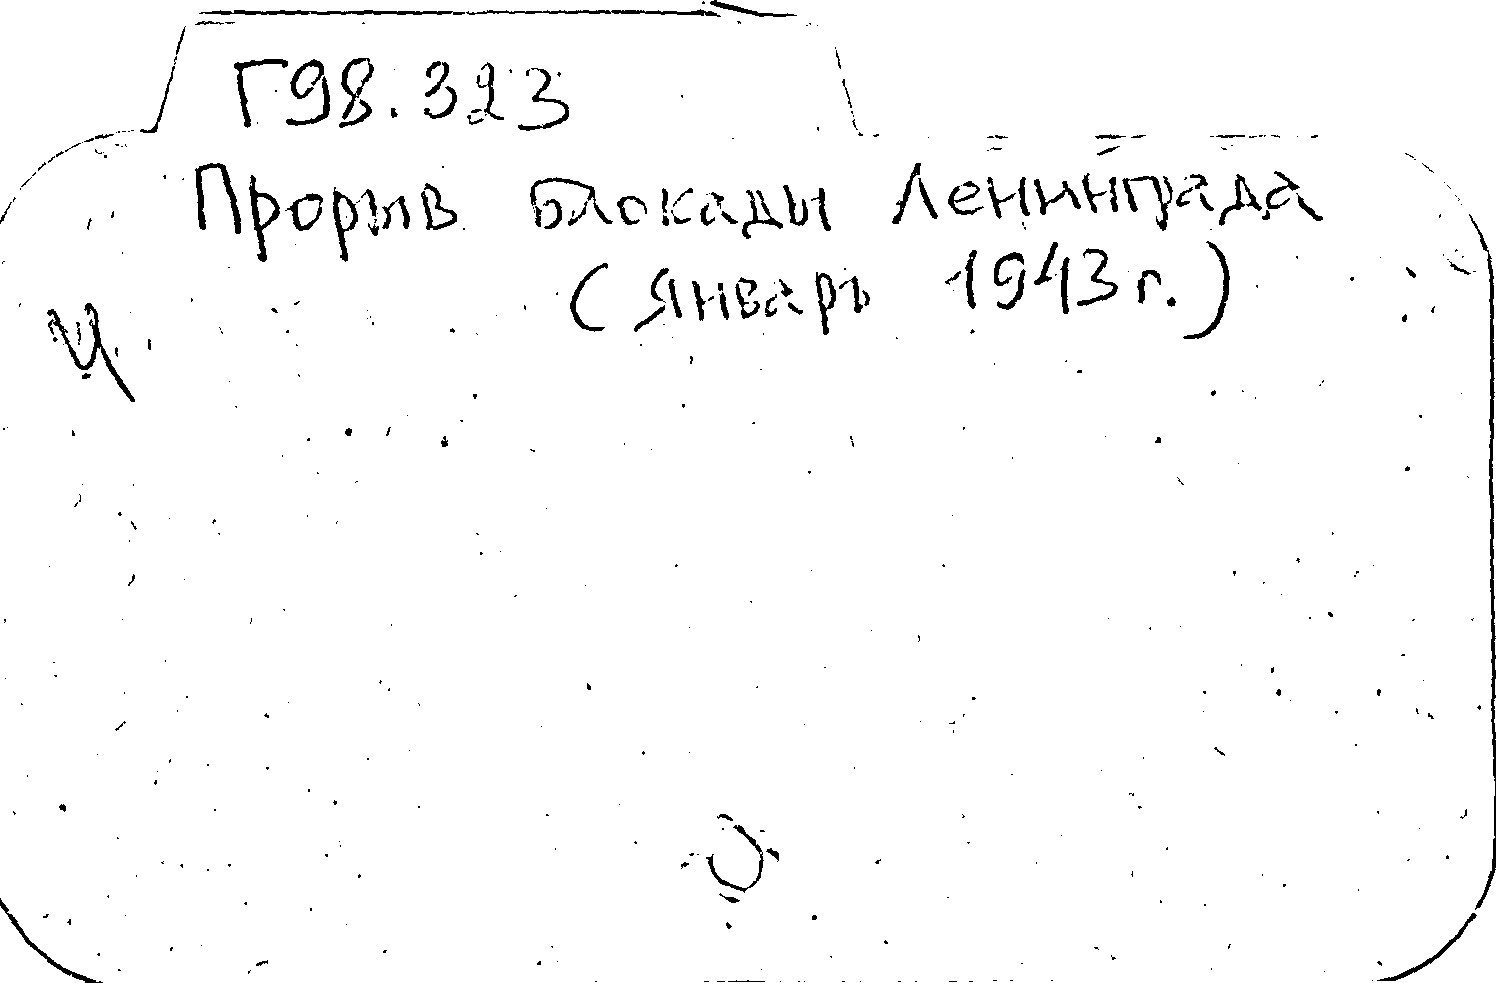 Г98.323
Прорыв блокады Ленинграда
(январь 1943 г.)